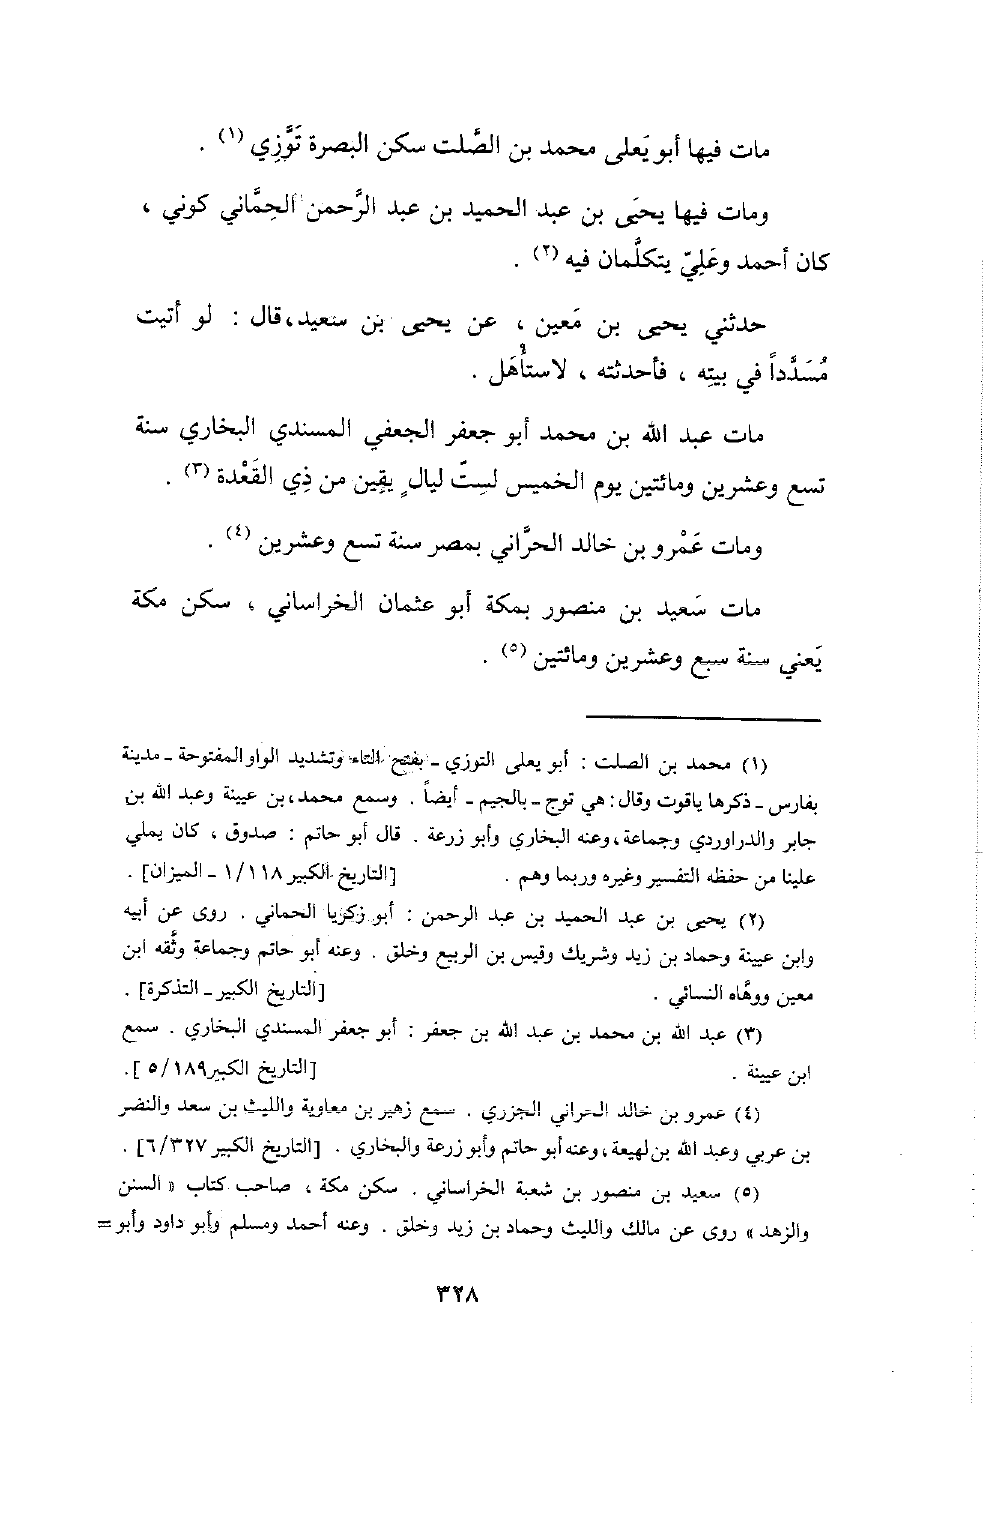 مات فيها أبو يَعلى محمد بن الصَّلت سكن البصرة تَوَّزِي (١) .
ومات فيها يحيَى بن عبد الحميد بن عبد الرَّحمن الحِمَّاني كوني ،
كان أحمد وعَلِيّ يتكلَّمان فيه (٢) .
حدثني يحيى بن مَعين ، عن يحيى بن سعيد، قال : لو أتيت
مُسَدَّداً في بيته ، فأحدثته ، لاستأْهَل .
مات عبد الله بن محمد أبو جعفر الجعفي المسندي البخاري سنة
تسع وعشرين ومائتين يوم الخميس لسِتّ ليالٍ يقِين من ذِي القَعْدة (٣) .
ومات عَمْرو بن خالد الحرَّاني بمصر سنة تسع وعشرين (٤) .
مات سَعيد بن منصور بمكة أبو عثمان الخراساني ، سكن مكة
يَعني سنة سبع وعشرين ومائتين (٥) .
(١) محمد بن الصلت : أبو يعلى التوزي ـ بفتح التاء وتشديد الواو المفتوحة ـ مدينة
بفارس ـ ذكرها ياقوت وقال : هي توج ـ بالجيم ـ أيضاً . وسمع محمد، بن عيينة وعبد الله بن
جابر والدراوردي وجماعة، وعنه البخاري وأبو زرعة . قال أبو حاتم : صدوق ، كان يملي
علينا من حفظه التفسير وغيره وربما وهم . [التاريخ الكبير ١/١١٨ ـ الميزان] .
(٢) يحيى بن عبد الحميد بن عبد الرحمن : أبو زكريا الحماني . روى عن أبيه
وابن عيينة وحماد بن زيد وشريك وقيس بن الربيع وخلق . وعنه أبو حاتم وجماعة وثَّقه ابن
معين ووهَّاه النسائي . [التاريخ الكبير ـ التذكرة] .
(٣) عبد الله بن محمد بن عبد الله بن جعفر : أبو جعفر المسندي البخاري . سمع
ابن عيينة . [التاريخ الكبير ٥/١٨٩ ].
(٤) عمرو بن خالد الحراني الجزري . سمع زهير بن معاوية والليث بن سعد والنضر
بن عربي وعبد الله بن لهيعة، وعنه أبو حاتم وأبو زرعة والبخاري . [التاريخ الكبير ٦/٣٢٧] .
(٥) سعيد بن منصور بن شعبة الخراساني . سكن مكة ، صاحب كتاب « السنن
والزهد » روى عن مالك والليث وحماد بن زيد وخلق . وعنه أحمد ومسلم وأبو داود وأبو =
٣٢٨